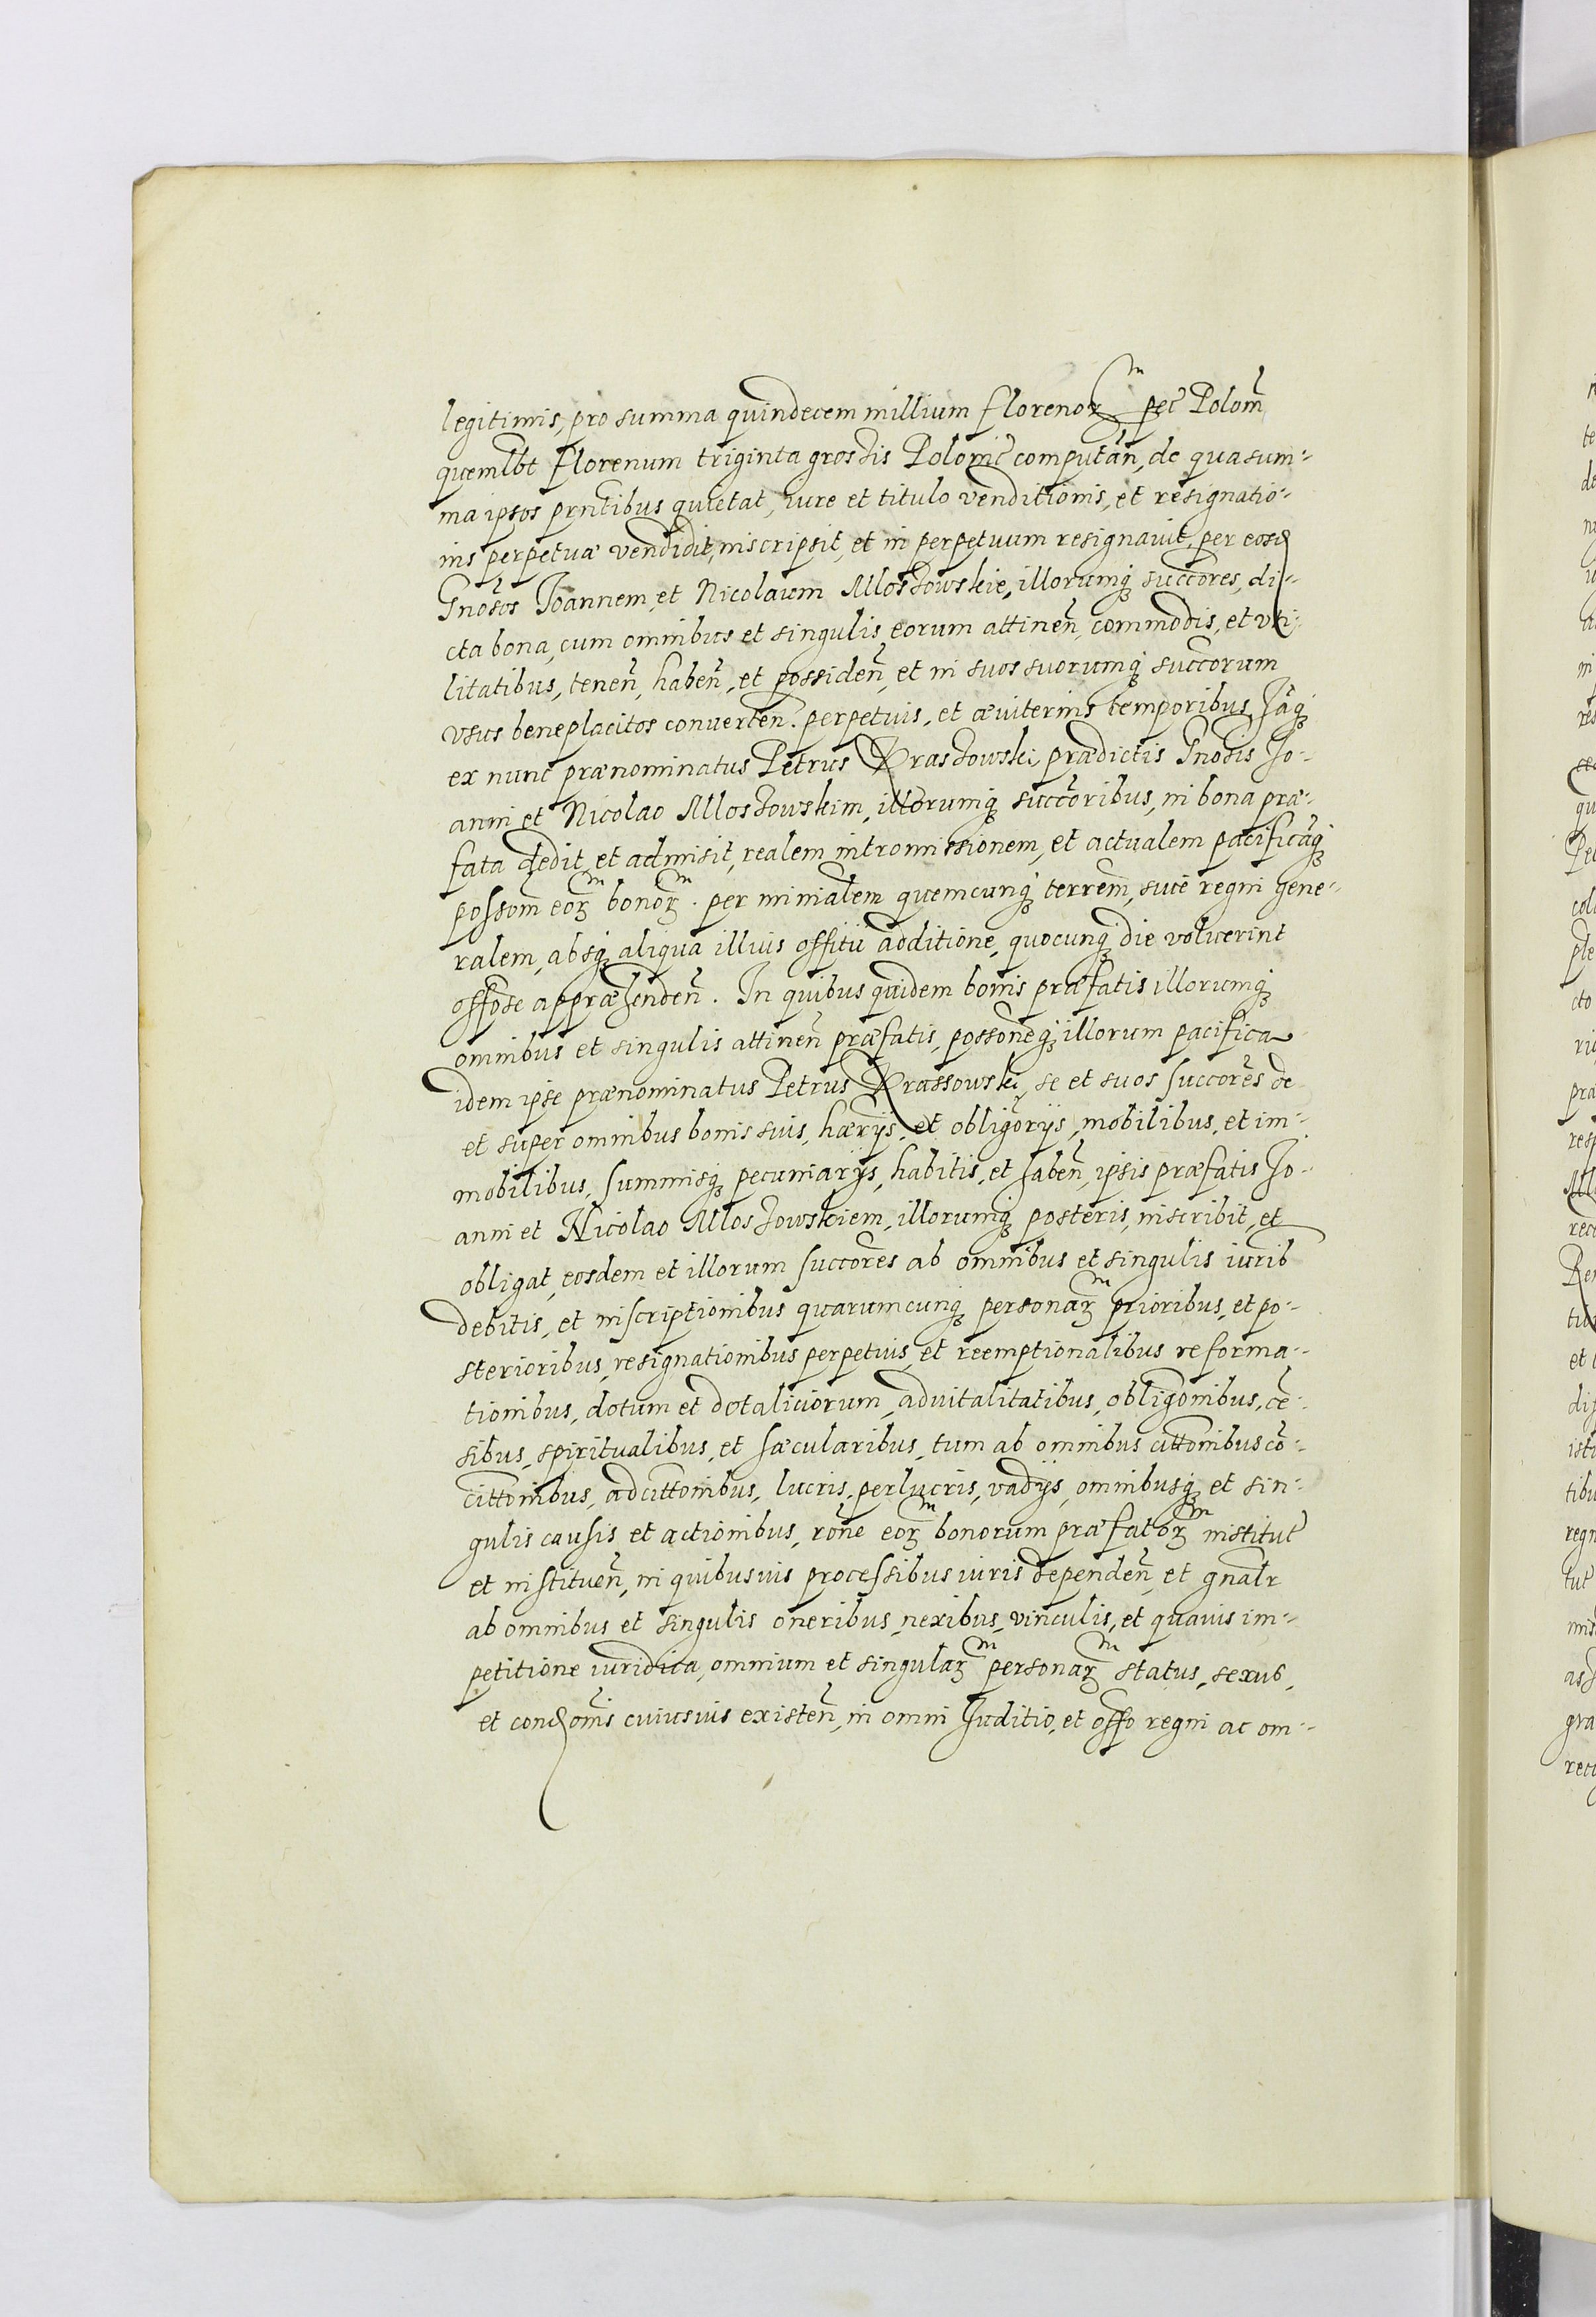 legitimis, pro summa quindecem millium florenorum pec̃ Polom̃
quemlbt florenum triginta grossis Polonic̃ computan̄, de qua sum-
ma ipsos prñtibus quietat, iure et titulo venditionis, et resignatio-
nis perpetuæ vendidit, inscripsit, et in perpetuum resignavit, per eosd
Gnosos Joannem, et Nicolaum Mloszowskie, illorumq₃ succores, di-
cta bona, cum omnibus et singulis eorum attinen̄, commodis, et vti-
litatibus, tenen̄, haben̄, et possiden̄, et in suos suorumq₃ succorum
vsus beneplacitos converten̄. perpetuis, et æviternis temporibus, Jaq₃
ex nunc prænominatus Petrus Kraszowski, prædictis Gnosis Jo-
anni et Nicolao Mloszowskim, illorumq₃ succoribus, in bona præ-
fata dedit, et admisit, realem intromissionem, et actualem pacificāq₃
possom̄ eorum bonorum. per minialem quemcunq₃ terrem̄, sive regni gene-
ralem, absq₃ aliqua illius offitii additione, quocunq₃ die voluerint
offose appræhenden̄. In quibus quidem bonis præfatis illorumq₃
omnibus et singulis attinen̄ præfatis, possoneq₃ illorum pacifica
idem ipse prænominatus Petrus Krassowski, se et suos succores de
et super omnibus bonis suis, hærijs, et obligorijs, mobilibus, et im-
mobilibus, summisq₃ pecuniarijs, habitis, et haben̄, ipsis præfatis Jo-
anni et Nicolao Mloszowskiem, illorumq₃ posteris, inscribit, et
obligat, eosdem et illorum succores ab omnibus et singulis iurib
debitis, et inscriptionibus quarumcunq₃ personarum prioribus, et po-
sterioribus, resignationibus perpetuis, et reemptionalibus reforma-
tionibus, dotum et dotaliciorum, advitalitatibus, obligonibus, cē-
sibus, spiritualibus, et sæcularibus, tum ab omnibus cittonibus cō-
cittonibus, adcittonibus, lucris, perlucris, vadijs, omnibusq₃ et sin-
gulis causis et actionibus, rōne eorum bonorum præfatorum institut
et instituen̄, in quibusuis processibus iuris dependen̄, et gnalr
ab omnibus et singulis oneribus, nexibus, vinculis, et quauis im-
petitione iuridica, omnium et singularum personarum status, sexus,
et condonis cuiusuis existen̄, in omni Juditio, et offo regni ac om-